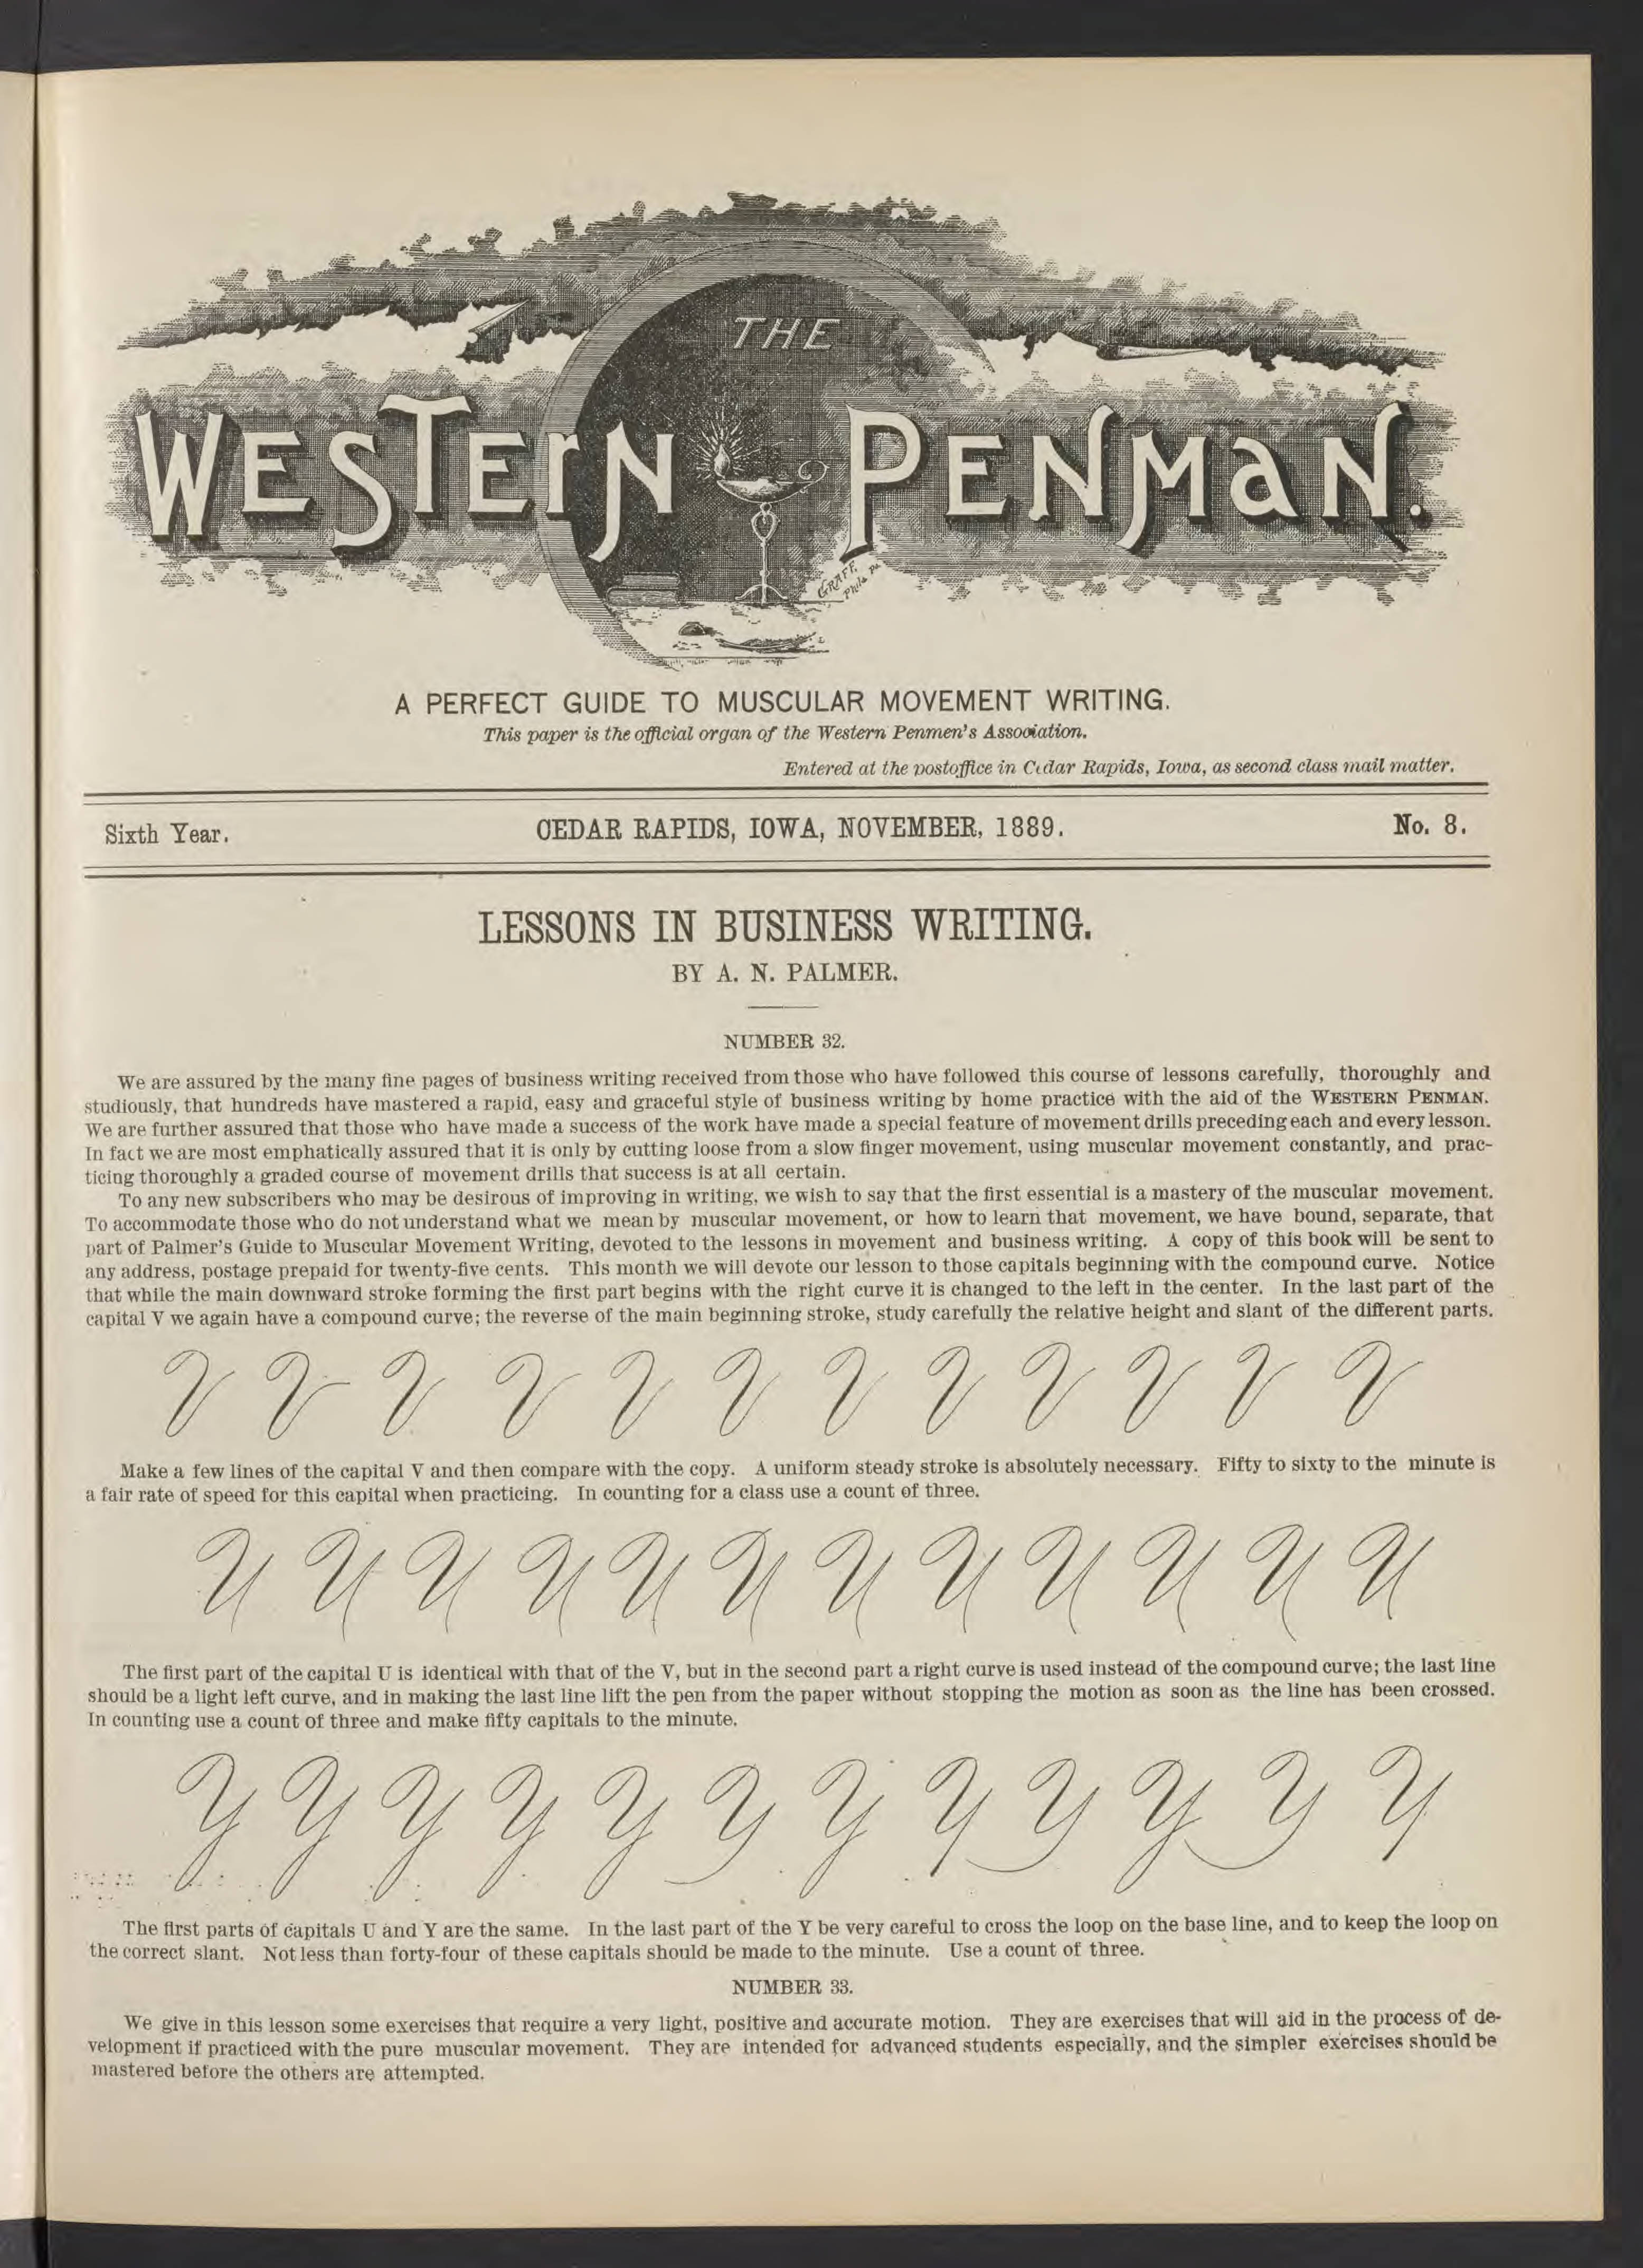 THE
WESTERN PENMAN.
GRAFF, Phila Pa
A PERFECT GUIDE TO MUSCULAR MOVEMENT WRITING.
This paper is the official organ of the Western Penmen's Association.
Entered at the postoffice in Cedar Rapids, Iowa, as second class mail matter.
Sixth Year. CEDAR RAPIDS, IOWA, NOVEMBER, 1889. No. 8.
LESSONS IN BUSINESS WRITING.
BY A. N. PALMER.
NUMBER 32.
We are assured by the many fine pages of business writing received from those who have followed this course of lessons carefully, thoroughly and
studiously, that hundreds have mastered a rapid, easy and graceful style of business writing by home practice with the aid of the WESTERN PENMAN.
We are further assured that those who have made a success of the work have made a special feature of movement drills preceding each and every lesson.
In fact we are most emphatically assured that it is only by cutting loose from a slow finger movement, using muscular movement constantly, and prac-
ticing thoroughly a graded course of movement drills that success is at all certain.
To any new subscribers who may be desirous of improving in writing, we wish to say that the first essential is a mastery of the muscular movement.
To accommodate those who do not understand what we mean by muscular movement, or how to learn that movement, we have bound, separate, that
part of Palmer's Guide to Muscular Movement Writing, devoted to the lessons in movement and business writing. A copy of this book will be sent to
any address, postage prepaid for twenty-five cents. This month we will devote our lesson to those capitals beginning with the compound curve. Notice
that while the main downward stroke forming the first part begins with the right curve it is changed to the left in the center. In the last part of the
capital V we again have a compound curve; the reverse of the main beginning stroke, study carefully the relative height and slant of the different parts.
V V V V V V V V V V V V
Make a few lines of the capital V and then compare with the copy. A uniform steady stroke is absolutely necessary. Fifty to sixty to the minute is
a fair rate of speed for this capital when practicing. In counting for a class use a count of three.
U U U U U U U U U U U U
The first part of the capital U is identical with that of the V, but in the second part a right curve is used instead of the compound curve; the last line
should be a light left curve, and in making the last line lift the pen from the paper without stopping the motion as soon as the line has been crossed.
In counting use a count of three and make fifty capitals to the minute.
Y Y Y Y Y Y Y Y Y Y Y Y
The first parts of capitals U and Y are the same. In the last part of the Y be very careful to cross the loop on the base line, and to keep the loop on
the correct slant. Not less than forty-four of these capitals should be made to the minute. Use a count of three.
NUMBER 33.
We give in this lesson some exercises that require a very light, positive and accurate motion. They are exercises that will aid in the process of de-
velopment if practiced with the pure muscular movement. They are intended for advanced students especially, and the simpler exercises should be
mastered before the others are attempted.